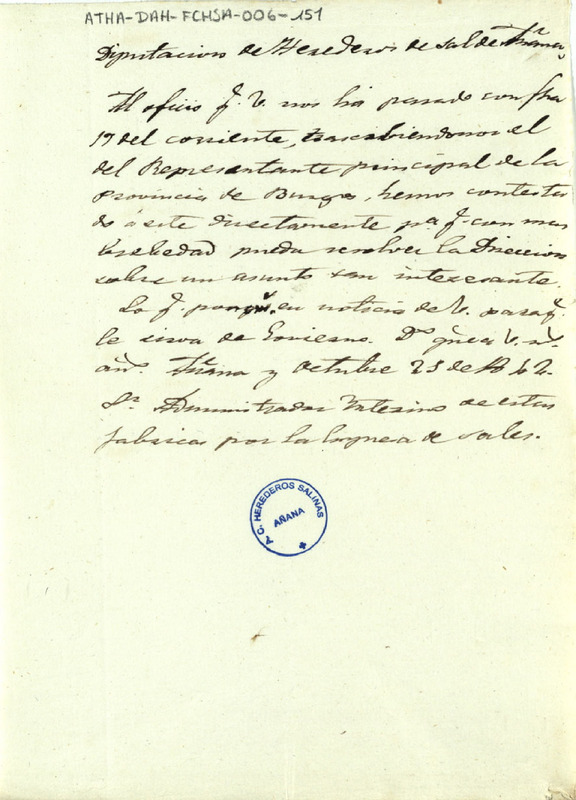 ATHA-DAH-FCHSA-006-151
Diputacion de Herederos de Sal de Añana
Al oficio q.e V. nos ha pasado con fha
19 del corriente, trascribiendonos el
del Representante principal de la
Provincia de Burgos, hemos contesta
do á este directamente p.a q.e con mas
brebedad pueda resolver la Direccion
sobre un asunto tan interesante.
Lo q.e en noticia de V. para q.e
le sirva de Govierno. D.s gue a V. m.s
añ.s Añana y Octubre 25 de 1842
S.r Administrador Interino de estas
fabricas por la Empresa de Sales.
A. C. HEREDEROS SALINAS
AÑANA